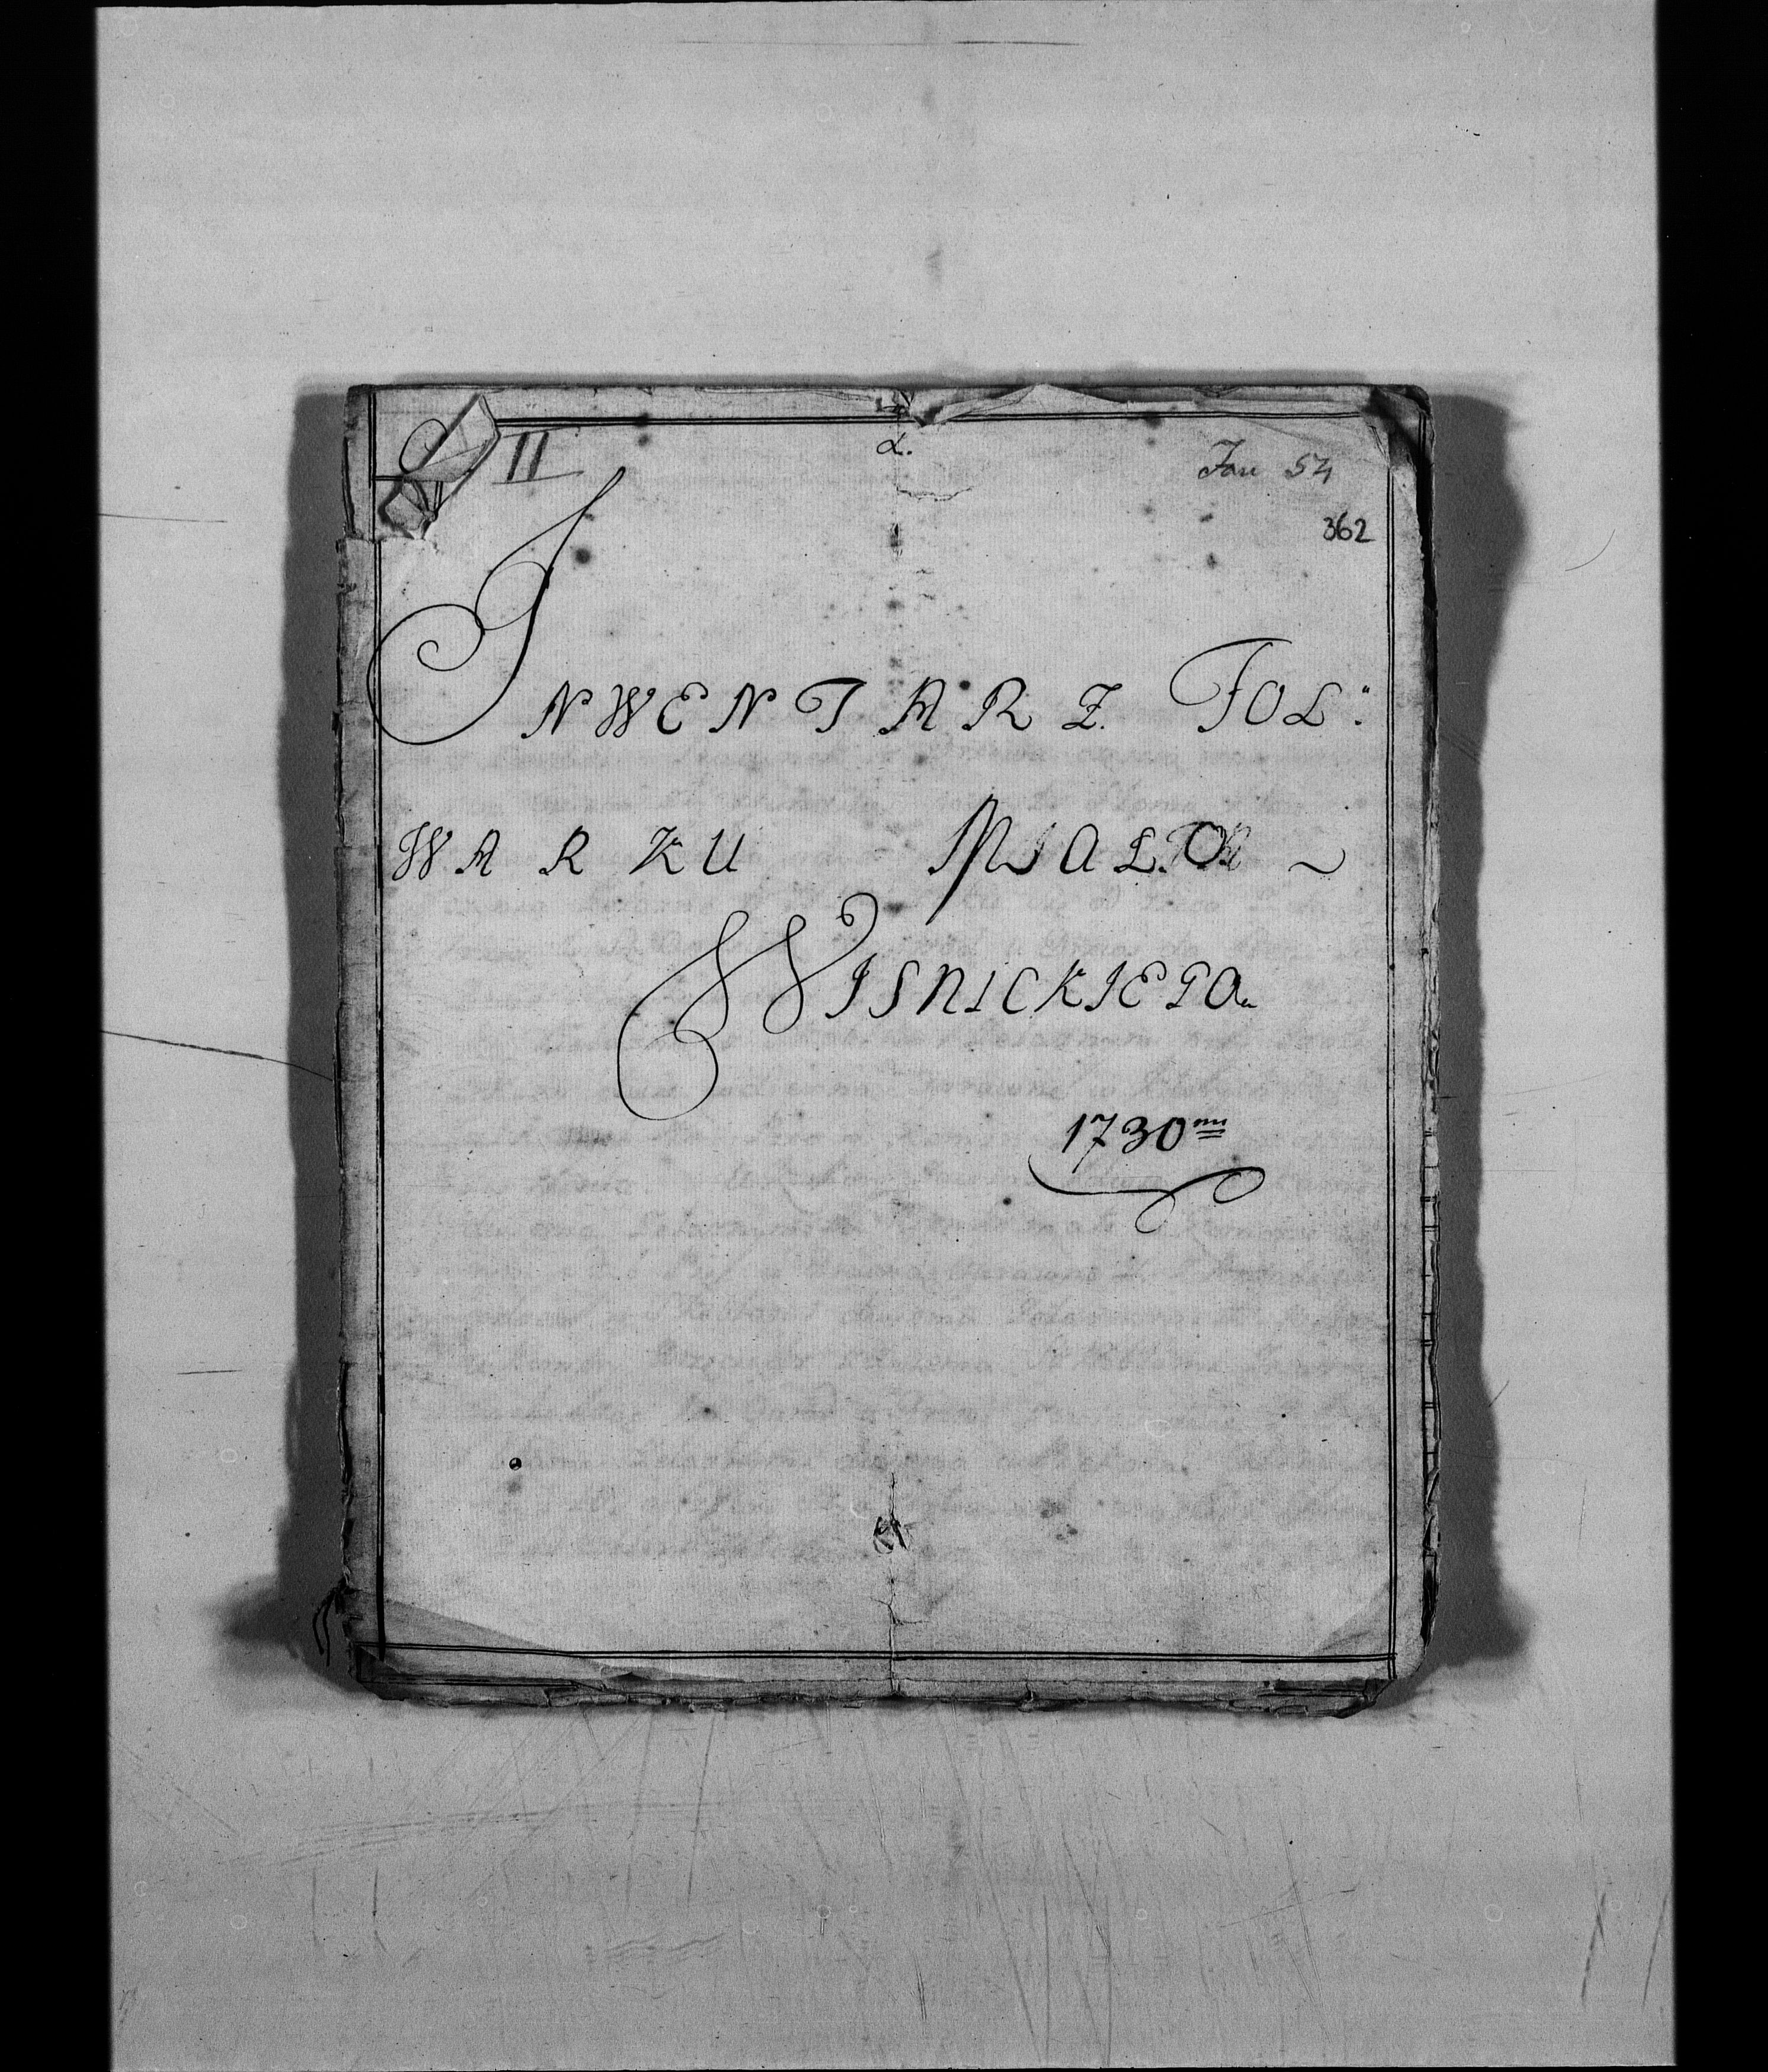 II
α.
Fau 54
362
INWENTARZ FOL:
WARKU
WISNICKIEGO
1730mi